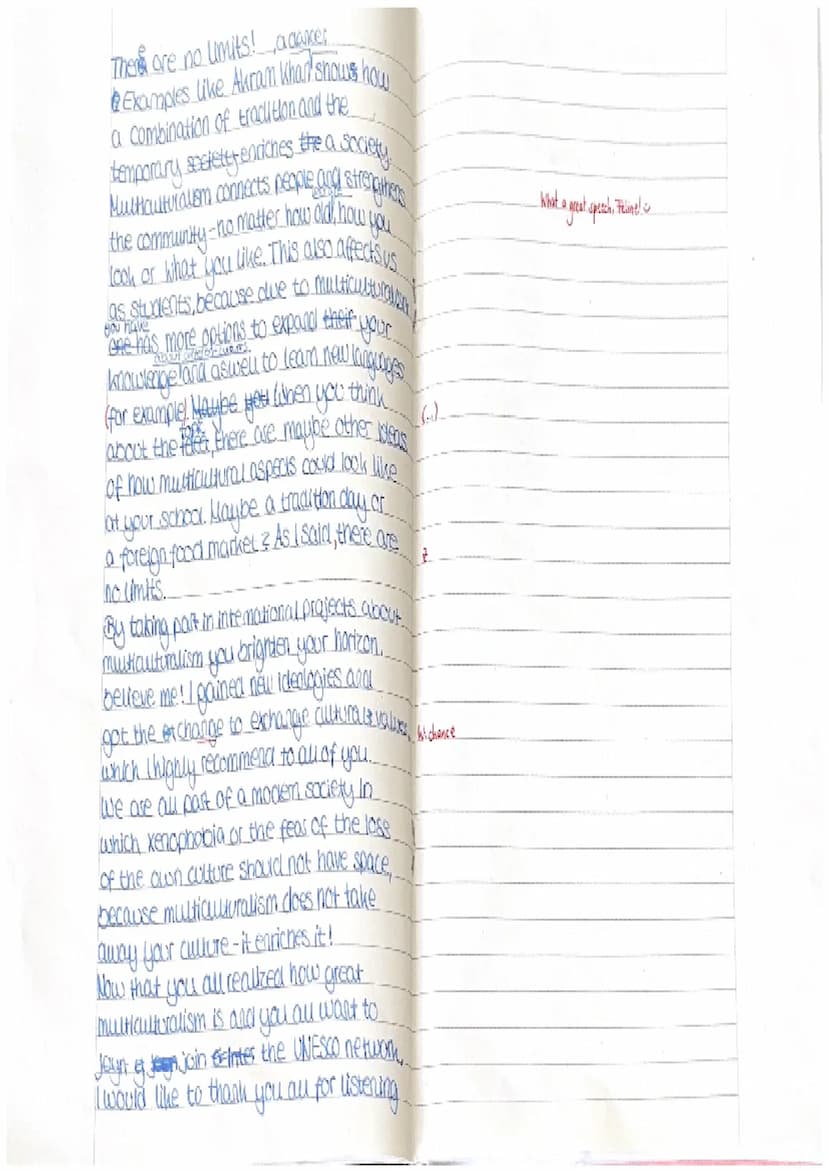 There are no limits! , a dancer,
Examples like Akram Khan shows how
a combination of tradition and the
temporary society enriches the a society.
Multiculturalism connects people and strengthens
the community - no matter how old, how you
look or what you like. This also affects us
as students, because due to multiculturalism
you have
one has more options to expand their your
knowledge and aswell to learn new languages
(for example). Maybe you When you think
about the topic, there are maybe other ideas
of how multicultural aspects could look like
at your school. Maybe a tradition day or
a foreign food market? As I said, there are
no limits.
By taking part in international projects about
multiculturalism you brighten your horizon,
believe me! I gained new ideologies and
got the change to exchange cultural values,
which I highly recommend to all of you.
We are all part of a modern society in
which xenophobia or the fear of the loss
of the own culture should not have space,
because multiculturalism does not take
away your culture - it enriches it!
Now that you all realized how great
multiculturalism is and you all want to
join the UNESCO network,
I would like to thank you all for listening
What a great speech,
(...)
W: chance